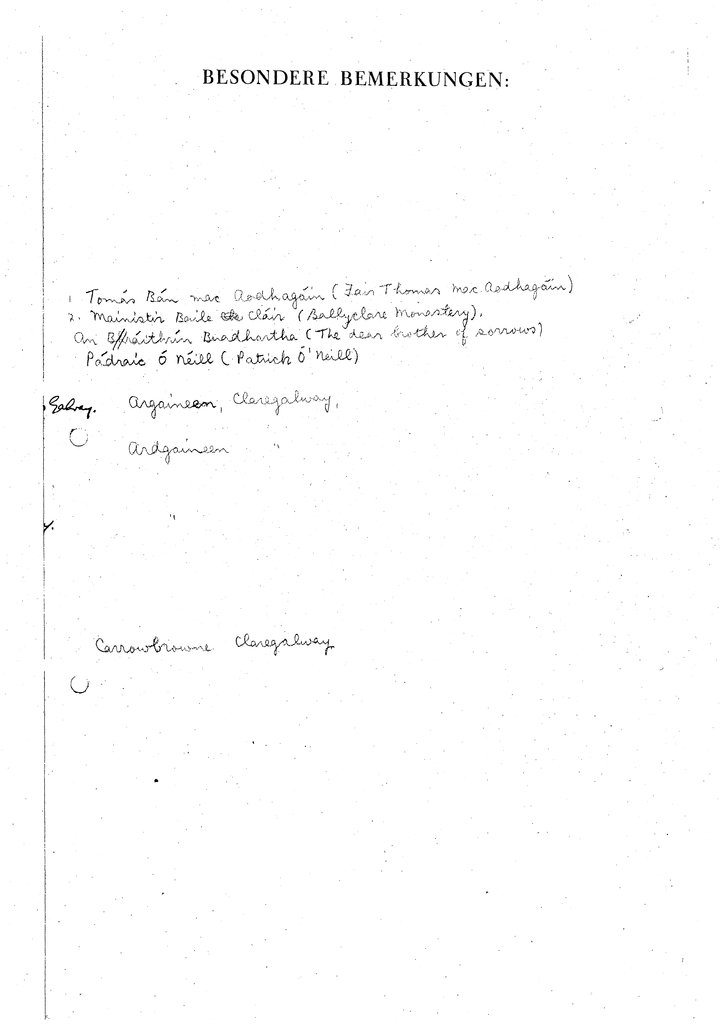 BESONDERE BEMERKUNGEN:
1 Tomás Bán mac Aodhagáin (Fair Thomas Mac Aodhagáin)
2. Mainistir Baile Cláir (Ballyclare Monastery).
An Bráithrín Buadhartha (The dear brother of sorrows)
Pádraic Ó Néill (Patrick Ó'Neill)
Galway. Argaineen, Claregalway,
Ardgaineen "
y. "
Carrowbrowne Claregalway